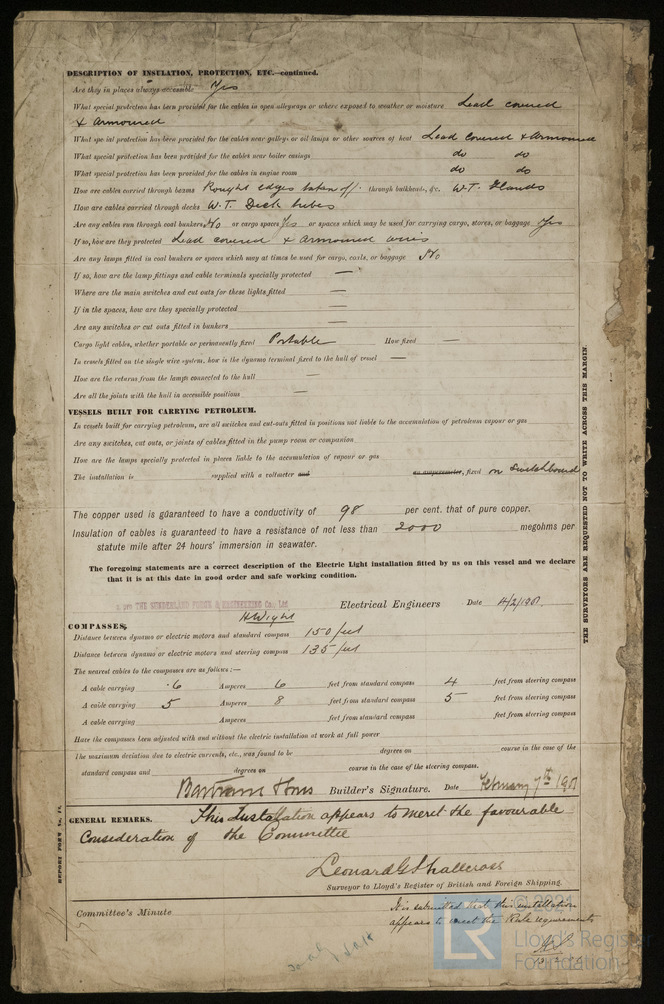 DESCRIPTION OF INSULATION, PROTECTION, ETC.—continued.
Are they in places always accessible Yes
What special protection has been provided for the cables in open alleyways or where exposed to weather or moisture Lead covered
& Armoured
What special protection has been provided for the cables near galleys or oil lamps or other sources of heat Lead Covered & Armoured
What special protection has been provided for the cables near boiler casings do do
What special protection has been provided for the cables in engine room do do
How are cables carried through beams Rought edges taken off through bulkheads, &c. W.T. Glands
How are cables carried through decks W.T. Deck tubes
Are any cables run through coal bunkers No or cargo spaces Yes or spaces which may be used for carrying cargo, stores, or baggage Yes
If so, how are they protected Lead covered & armoured wires
Are any lamps fitted in coal bunkers or spaces which may at times be used for cargo, coals, or baggage No
If so, how are the lamp fittings and cable terminals specially protected —
Where are the main switches and cut outs for these lights fitted —
If in the spaces, how are they specially protected —
Are any switches or cut outs fitted in bunkers —
Cargo light cables, whether portable or permanently fixed Portable How fixed —
In vessels fitted on the single wire system, how is the dynamo terminal fixed to the hull of vessel —
How are the returns from the lamps connected to the hull —
Are all the joints with the hull in accessible positions —
VESSELS BUILT FOR CARRYING PETROLEUM.
In vessels built for carrying petroleum, are all switches and cut-outs fitted in positions not liable to the accumulation of petroleum vapour or gas
Are any switches, cut outs, or joints of cables fitted in the pump room or companion
How are the lamps specially protected in places liable to the accumulation of vapour or gas
The installation is supplied with a voltmeter and an amperemeter, fixed on Switchboard
The copper used is guaranteed to have a conductivity of 98 per cent. that of pure copper.
Insulation of cables is guaranteed to have a resistance of not less than 2000 megohms per
statute mile after 24 hours' immersion in seawater.
The foregoing statements are a correct description of the Electric Light installation fitted by us on this vessel and we declare
that it is at this date in good order and safe working condition.
THE SUNDERLAND FORGE & ENGINEERING Co., Ltd Electrical Engineers Date 4/2/1901.
COMPASSES.
Distance between dynamo or electric motors and standard compass 150 feet
Distance between dynamo or electric motors and steering compass 135 feet
The nearest cables to the compasses are as follows:—
A cable carrying .6 Amperes 6 feet from standard compass 4 feet from steering compass
A cable carrying 5 Amperes 8 feet from standard compass 5 feet from steering compass
A cable carrying Amperes feet from standard compass feet from steering compass
Have the compasses been adjusted with and without the electric installation at work at full power
The maximum deviation due to electric currents, etc., was found to be degrees on course in the case of the
standard compass and degrees on course in the case of the steering compass.
Bartram & Sons Builder's Signature. Date February 7th 1901
GENERAL REMARKS. This Installation appears to merit the favourable
Consideration of the Committee
Leonard G Shallcross
Surveyor to Lloyd's Register of British and Foreign Shipping.
Committee's Minute
It is submitted that this installation
appears to meet the Rule requirements
THE SURVEYORS ARE REQUESTED NOT TO WRITE ACROSS THIS MARGIN.
© 2021
LR
Lloyd's Register
Foundation